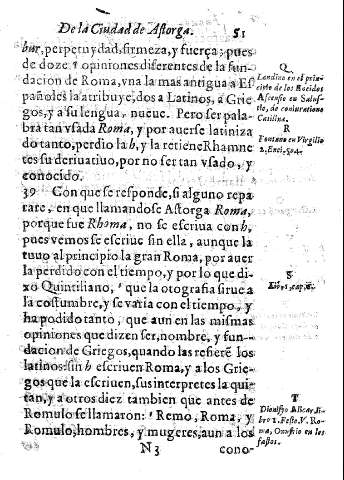 De la Ciudad de Astorga. 51
bur, perpetuydad, firmeza, y fuerça; pues
de doze opiniones diferentes de la fun-
dacion de Roma, vna la mas antigua a Es
pañoles la atribuye, dos a Latinos, a Grie
gos, y a su lengua, nueue. Pero ser pala
bra tan vsada Roma, y por auerse latiniza
do tanto, perdio la h, y la retiene Rhamne
tes su deriuatiuo, por no ser tan vsado, y
conocido.
39 Con que se responde, si alguno repa
rare, en que llamandose Astorga Roma,
porque fue Rhoma, no se escriua con h,
pues vemos se escriue sin ella, aunque la
tuuo al principio la gran Roma, por auer
la perdido con el tiempo, y por lo que di-
xo Quintiliano, que la otografia sirue a
la costumbre, y se varia con el tiempo, y
ha podido tanto, que aun en las mismas
opiniones que dizen ser, nombre, y fun-
dacion de Griegos, quando las refierē los
latinos: sin h escriuen Roma, y a los Grie-
gos que la escriuen, sus interpretes la qui-
tan, y a otros diez tambien que antes de
Romulo se llamaron: Remo, Roma, y
Romulo, hombres, y mugeres, aun a los
N3 cono-
Q
Landino en el prin-
cipio de los Eneidos
Ascensio en Salus-
tio, de coniuratione
Catilina.
R
Pontano en Virgilio
2, Enei.
S
Lib. 1, cap.
T
Dionysio Alicar, li-
bro 1. Festo, V. Ro-
ma, Onufrio en los
fastos.